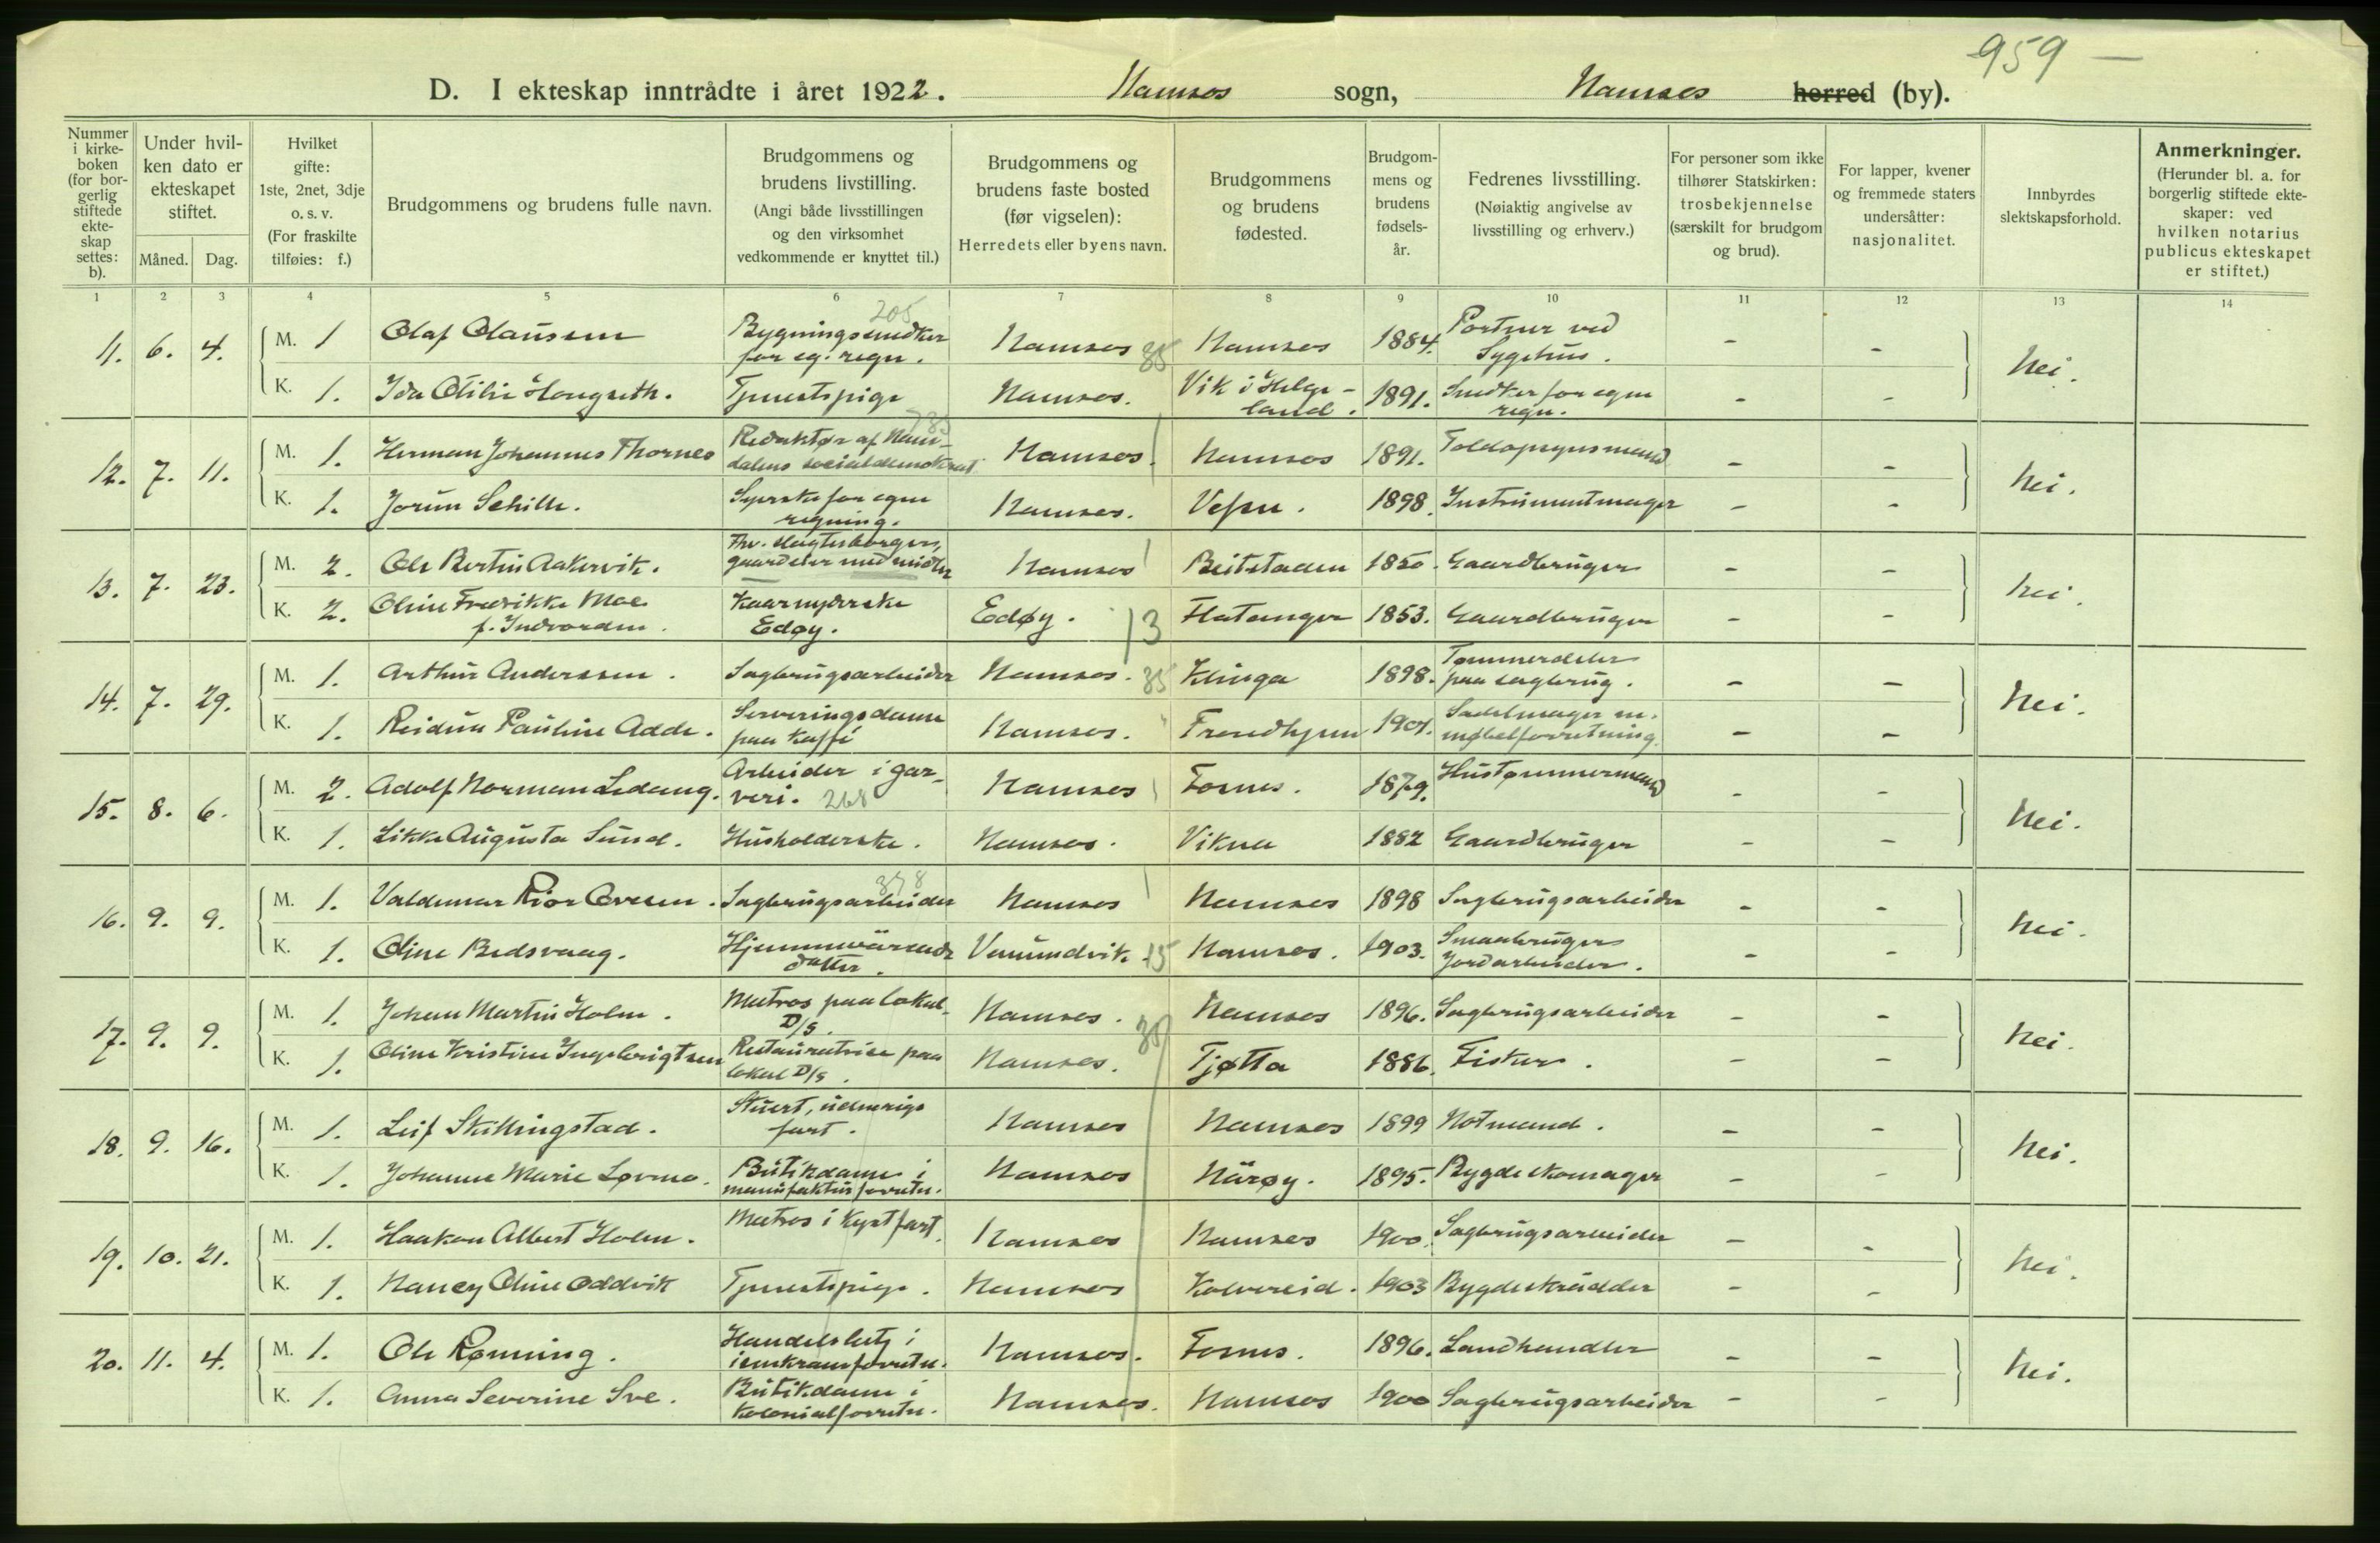 959 —
D. I ekteskap inntrådte i året 1922. Namsos sogn, Namsos herred (by).
Nummer i kirke-boken (for bor-gerlig stiftede ekte-skap settes: b).
Under hvil-ken dato er ekteskapet stiftet.
Måned. Dag.
Hvilket gifte: 1ste, 2net, 3dje o. s. v. (For fraskilte tilføies: f.)
Brudgommens og brudens fulle navn.
Brudgommens og brudens livstilling. (Angi både livsstillingen og den virksomhet vedkommende er knyttet til.)
Brudgommens og brudens faste bosted (før vigselen): Herredets eller byens navn.
Brudgommens og brudens fødested.
Brudgom-mens og brudens fødsels-år.
Fedrenes livsstilling. (Nøiaktig angivelse av livsstilling og erhverv.)
For personer som ikke tilhører Statskirken: trosbekjennelse (særskilt for brudgom og brud).
For lapper, kvener og fremmede staters undersåtter: nasjonalitet.
Innbyrdes slektskapsforhold.
Anmerkninger. (Herunder bl. a. for borgerlig stiftede ekte-skaper: ved hvilken notarius publicus ekteskapet er stiftet.)
1 2 3 4 5 6 7 8 9 10 11 12 13 14
11. 6. 4. M. 1 Olaf Olaussen Bygningssnedker for eg. regn. 205 Namsos 35 Namsos 1884. Portner ved Sygehus. - - Nei.
K. 1. Ida Otilie Hongseth. Tjenestpige Namsos. Vik i Helge-land. 1891. Snedker for egen regn. - -
12. 7. 11. M. 1. Herman Johannes Thornes Redaktør af Nam-dalens socialdemokrat Namsos. Namsos 1891. Toldopsynsmand - - Nei.
K. 1. Jorun Schille. Syerske for egen regning. Namsos. Vefsn. 1898. Instrumentmager - -
13. 7. 23. M. 2. Ole Bertin Aakervik. Fhv. slagtesborger, gaardeier med midler Namsos Beitstaden 1850. Gaardbruger - - Nei.
K. 2. Oline Fredrikke Moe f. Indvorden. Kaarnyderske Edøy. Edøy. 13 Flatanger 1853. Gaardbruger - -
14. 7. 29. M. 1. Arthur Anderssen. Sagbrugsarbeider Namsos. 35 Klinga 1898. Tømmerdeler paa sagbrug. - - Nei.
K. 1. Reidun Pauline Adde. Serveringsdame paa Kaffé Namsos. " Trondhjem 1901. Sadelmager m. møbelforretning. - -
15. 8. 6. M. 2. Adolf Norman Ledang. Arbeider i gar-veri. 268 Namsos Fosnes. 1879. Hustømmermand - - Nei.
K. 1. Likka Augusta Sund. Husholderske. Namsos. Vikna 1882 Gaardbruger - -
16. 9. 9. M. 1. Valdemar Rior Ovesen. Sagbrugsarbeider 378 Namsos Namsos 1898 Sagbrugsarbeider - - Nei.
K. 1. Oline Bedsvaag. Hjemmeværende datter. Vemundvik 15 Namsos. 1903. Smaabruger Jordarbeider. - -
17. 9. 9. M. 1. Johan Martin Holm. Matros paa lokal-D/S. Namsos. Namsos 1896. Sagbrugsarbeider - - Nei.
K. 1. Oline Kristine Ingebrigtsen Restauratrice paa lokal D/S. Namsos. Tjøtta 1886. Fisker. - -
18. 9. 16. M. 1. Leif Skillingstad. Stuert, udenrigs fart. Namsos Namsos 1899 Notmand. - - Nei.
K. 1. Johanne Marie Løvmo. Butikdame i manufakturforretn. Namsos Närøy. 1895. Bygdeskomager - -
19. 10. 21. M. 1. Haakon Albert Holm. Matros i Kystfart. Namsos Namsos 1900. Sagbrugsarbeider - - Nei.
K. 1. Nancy Oline Oddvik Tjenestpige. Namsos Kolvereid. 1903 Bygdeskrædder - -
20. 11. 4. M. 1. Ole Rønning. Handelsbetj i isenkramforretn. Namsos. Fosnes. 1896. Landhandler - - Nei.
K. 1. Anna Severine Sve. Butikdame i Kolonialforretn. Namsos. Namsos 1900 Sagbrugsarbeider - -